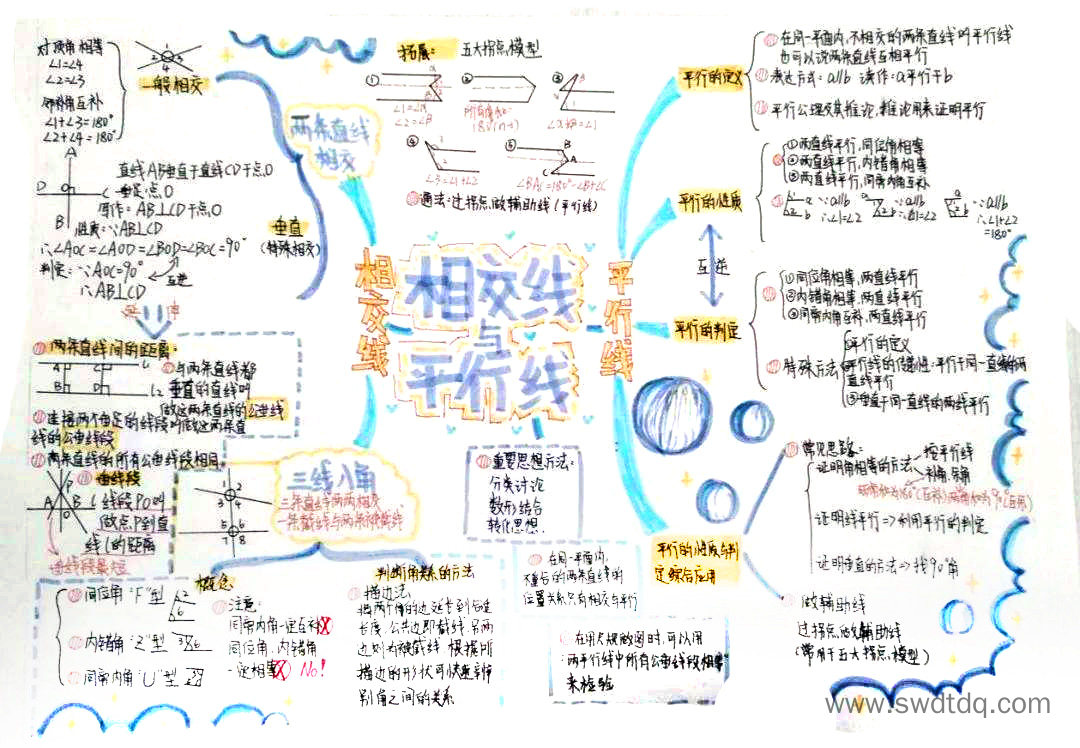 相交线
与
平行线
相交线
平行线
两条直线
相交
一般相交
对顶角相等
∠1=∠4
∠2=∠3
邻补角互补
∠1+∠3=180°
∠2+∠4=180°
垂直
(特殊相交)
直线AB垂直于直线CD于点O
垂足:点O
写作:AB⊥CD于点O
性质:∵AB⊥CD
∴∠AOC=∠AOD=∠BOD=∠BOC=90°
判定:∵∠AOC=90°
互逆
∴AB⊥CD
两条直线间的距离:
与两条直线都
垂直的直线叫
做这两条直线的公垂线
连接两个垂足的线段叫做这两条直
线的公垂线段
两条直线的所有公垂线段相同
垂线段
线段PO叫
做点P到直
线l的距离
垂线段最短
三线八角
三条直线两两相交
一条截线与两条被截线
概念
同位角 "F"型
内错角 "Z"型
同旁内角 "U"型
注意:
同旁内角一定互补X
同位角、内错角
一定相等X No!
判断角关系的方法
描边法
把两个角的边延长到合适
长度,公共边即截线,另两
边则为被截线,根据所
描边的形状可快速判
别角之间的关系
拓展: 五大拐点模型
① ② ③
④ ⑤
∠3=∠1+∠2
∠BAC=180°-∠B+∠C
通法:过拐点,做辅助线(平行线)
平行的定义
在同一平面内,不相交的两条直线叫平行线
也可以说两条直线互相平行
表达方式:a//b 读作:a平行于b
平行公理及其推论,推论用来证明平行
平行的性质
①两直线平行,同位角相等
②两直线平行,内错角相等
③两直线平行,同旁内角互补
∵a//b ∵a//b ∵a//b
∴∠1=∠2 ∴∠1=∠2 ∴∠1+∠2
=180°
互逆
平行的判定
①同位角相等,两直线平行
②内错角相等,两直线平行
③同旁内角互补,两直线平行
特殊方法
平行的定义
平行线的传递性:平行于同一直线的两
直线平行
③垂直于同一直线的两线平行
重要思想方法:
分类讨论
数形结合
转化思想
在同一平面内,
不重合的两条直线的
位置关系只有相交与平行
在用尺规做图时,可以用
"两平行线中所有公垂线段相等"
来检验
平行的性质与判
定综合应用
常见思路:
证明角相等的方法
找平行线
补角、余角
证明线平行=>利用平行的判定
证明垂直的方法=>找90°角
做辅助线
过拐点做辅助线
(常用于五大拐点模型)
www.swdtdq.com